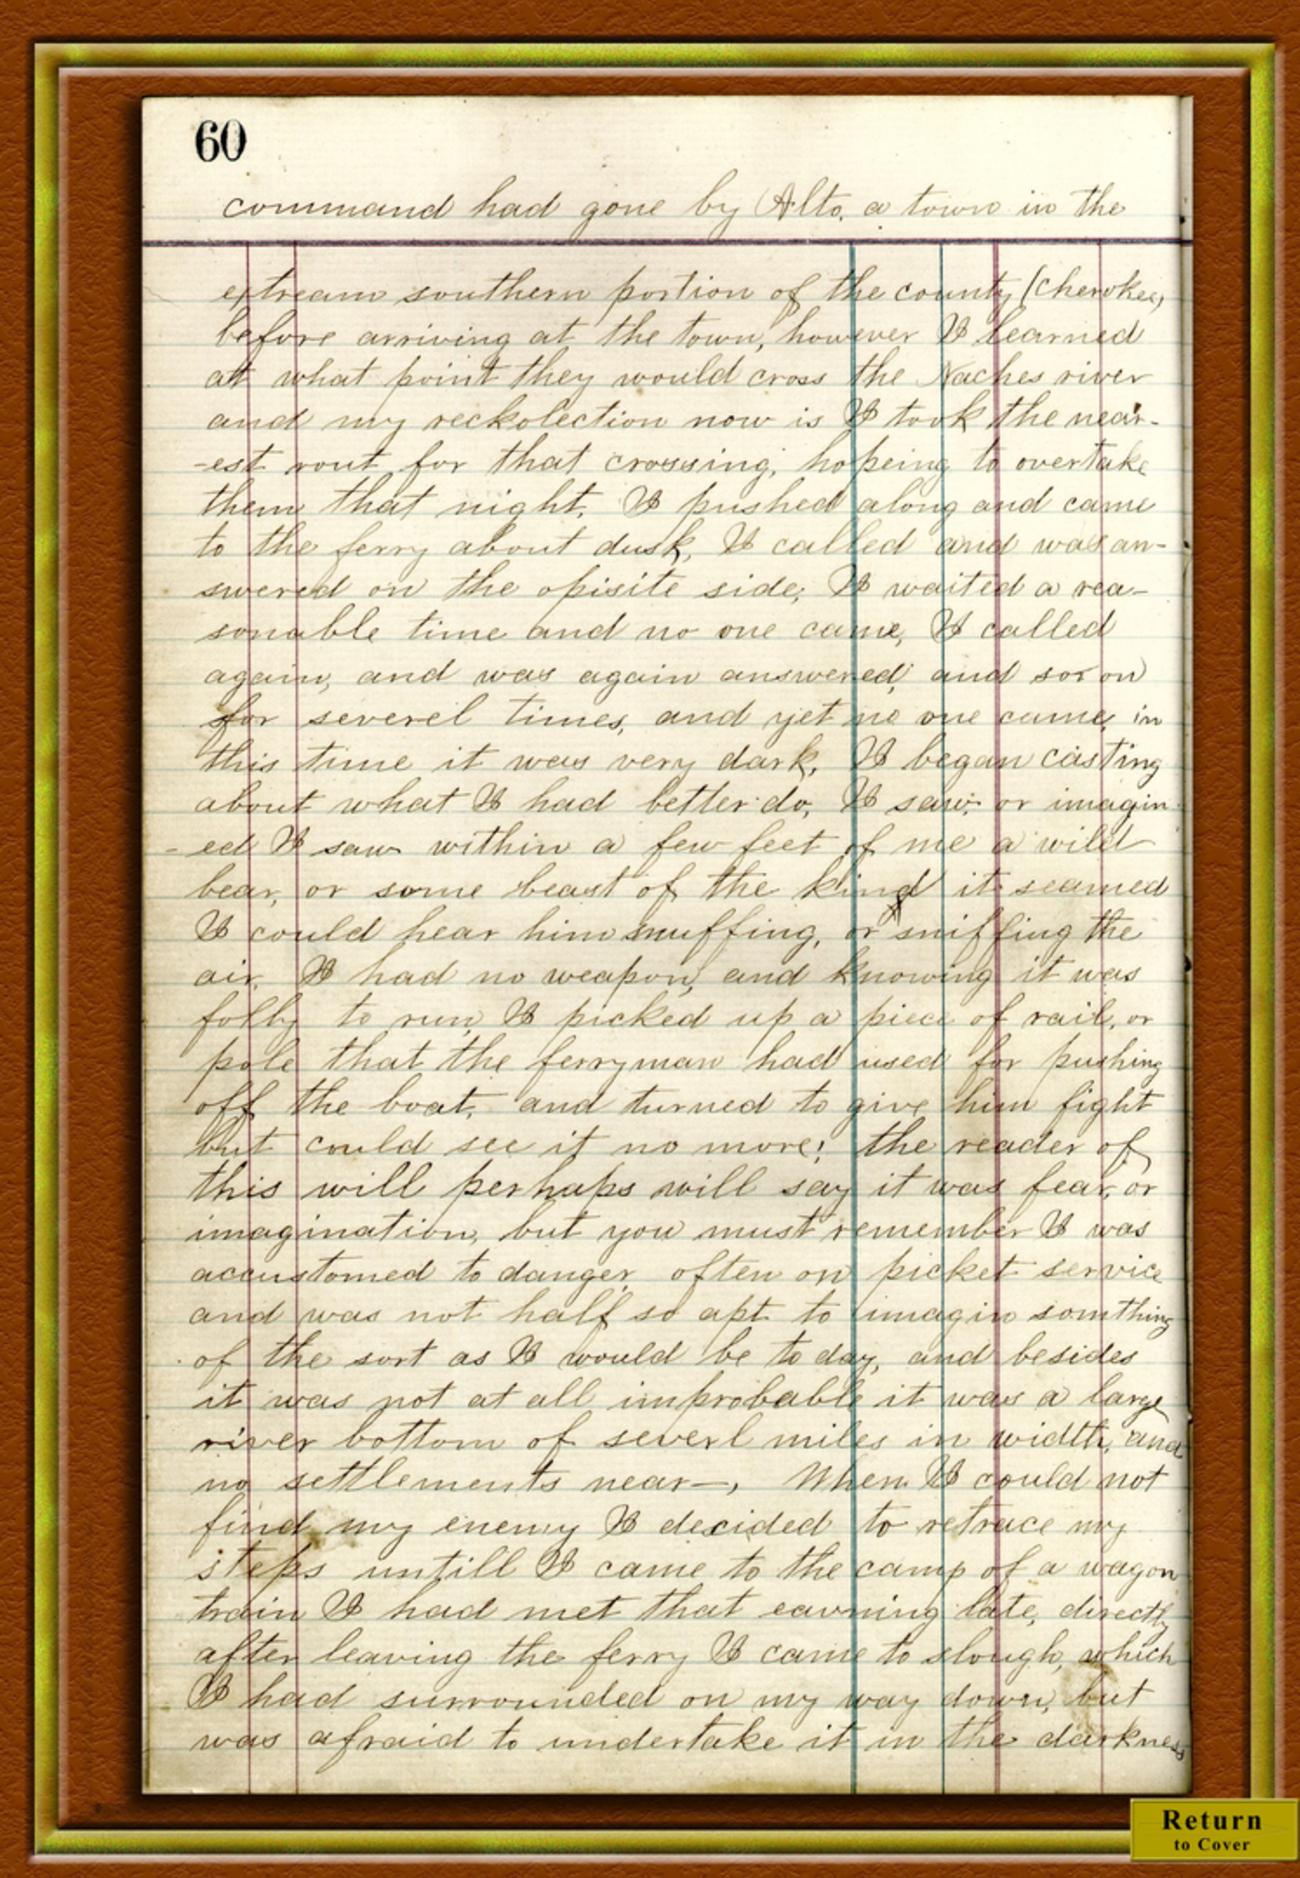 60
command had gone by Alto, a town in the
extream southern portion of the county (cherokee)
before arriving at the town, however I learned
at what point they would cross the Naches river
and my reckolection now is I took the near-
-est rout for that crossing, hopeing to overtake
them that night, I pushed along and came
to the ferry about dusk, I called and was an-
swered on the opisite side, I waited a rea-
sonable time and no one came, I called
again, and was again answered, and so on
for severel times, and yet no one came, in
this time it was very dark, I began casting
about what I had better do, I saw, or imagin
-ed I saw within a few feet of me a wild
bear, or some beast of the kind it seamed
I could hear him snuffing, or sniffing the
air, I had no weapon, and knowing it was
folly to run, I picked up a piece of rail, or
pole that the ferryman had used for pushing
off the boat, and turned to give him fight
but could see it no more; the reader of
this will perhaps will say it was fear, or
imagination, but you must remember I was
accustomed to danger, often on picket service
and was not half so apt to imagin somthing
of the sort as I would be to day, and besides
it was not at all improbable it was a large
river bottom of severl miles in width, and
no settlements near—, When I could not
find my enemy I decided to retrace my
steps untill I came to the camp of a wagon
train I had met that eavning late, directly
after leaving the ferry I came to slough, which
I had surrounded on my way down, but
was afraid to undertake it in the darkness
Return
to Cover